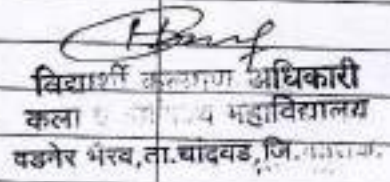 विद्यार्थी कल्याण अधिकारी
कला व महाविद्यालय
वडनेर भैरव,ता.चांदवड,जि.